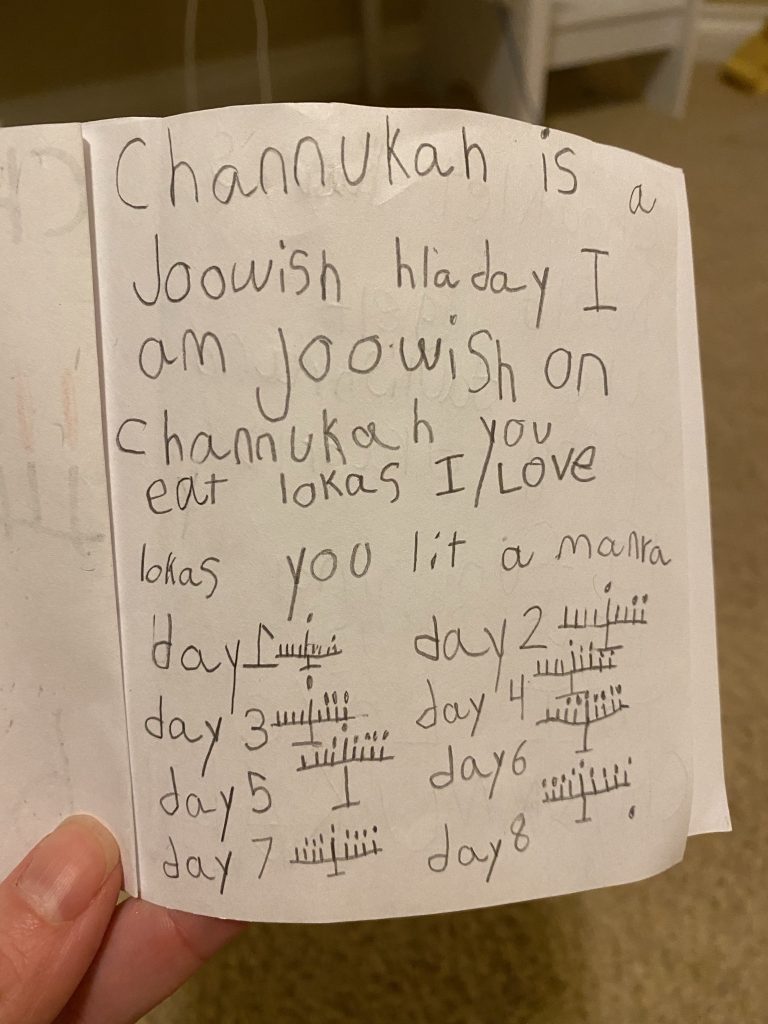 Channukah is a
Joowish hladay I
am joowish on
channukah you
eat lokas I/LOVE
lokas you lit a manra
day 1 day 2
day 3 day 4
day 5 day 6
day 7 day 8